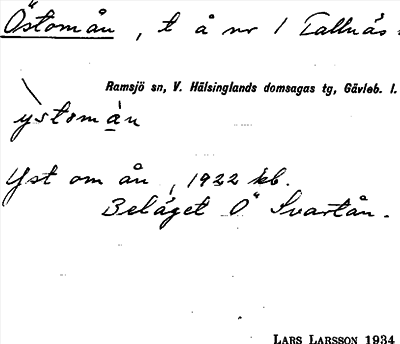 Östomån, t å nr 1 Tallnäs.
Ramsjö sn, V. Hälsinglands domsagas tg, Gävleb. l.
ystomàn
Yst om ån, 1922 kb.
Beläget Ö Svartån.
LARS LARSSON 1934